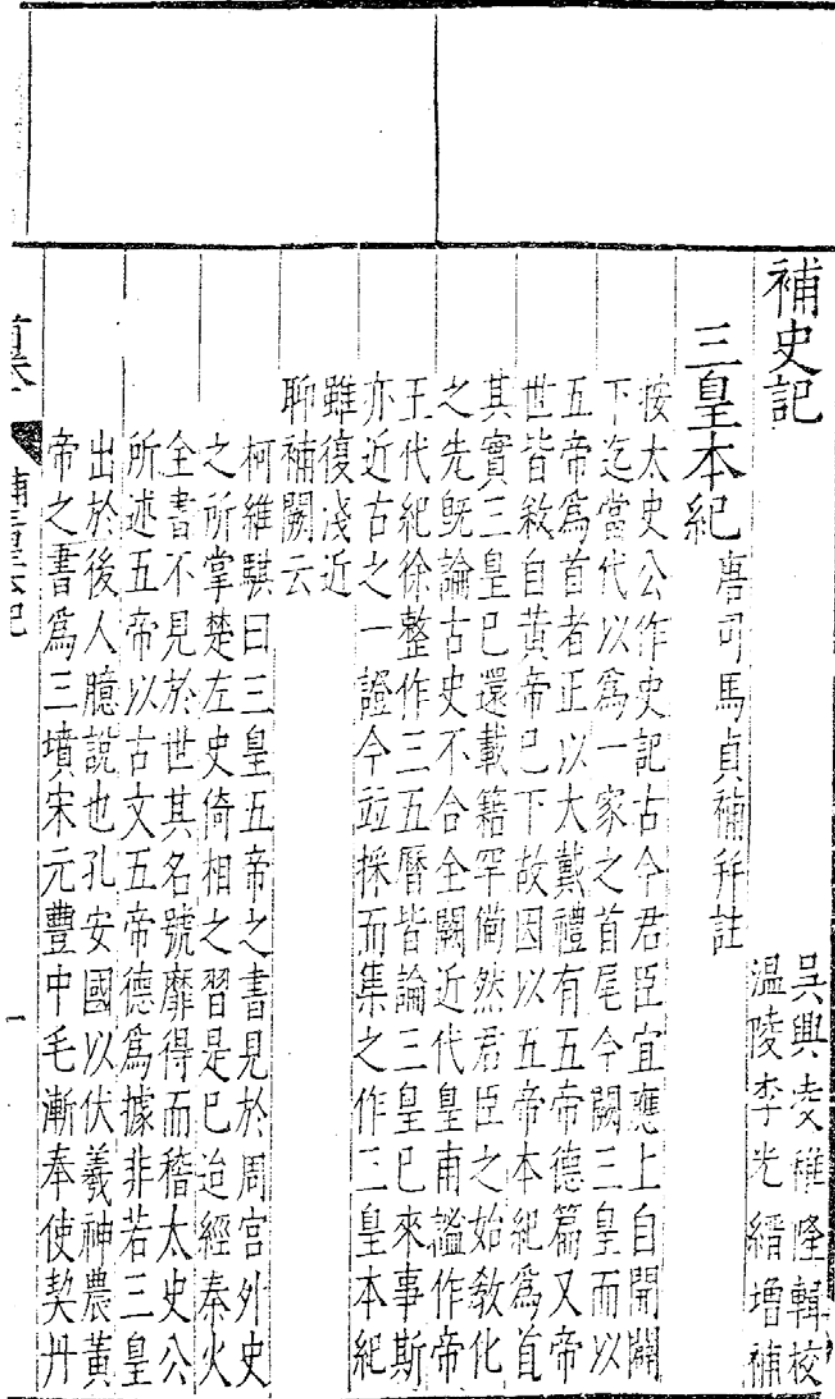 補史記
吳興凌稚隆輯校
溫陵李光縉增補
三皇本紀 唐司馬貞補并註
按太史公作史記古今君臣宜應上自開闢
下迄當代以爲一家之首尾今闕三皇而以
五帝爲首者正以大戴禮有五帝德篇又帝
世皆敘自黃帝已下故因以五帝本紀爲首
其實三皇已還載籍罕備然君臣之始敎化
之先旣論古史不合全闕近代皇甫謐作帝
王代紀徐整作三五曆皆論三皇已來事斯
亦近古之一證今並採而集之作三皇本紀
雖復淺近
聊補闕云
柯維騏曰三皇五帝之書見於周官外史
之所掌楚左史倚相之習是已迨經秦火
全書不見於世其名號靡得而稽太史公
所述五帝以古文五帝德爲據非若三皇
出於後人臆說也孔安國以伏羲神農黃
帝之書爲三墳宋元豐中毛漸奉使契丹
一